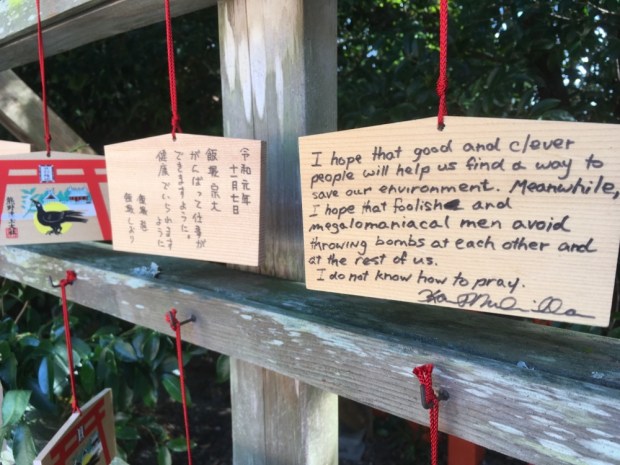 令和元年
十一月七日
がんばって仕事が
できますように。
健康でいられますように
しおり
I hope that good and clever
people will help us find a way to
save our environment. Meanwhile,
I hope that foolish and
megalomaniacal men avoid
throwing bombs at each other and
at the rest of us.
I do not know how to pray.